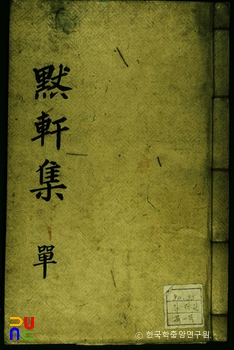 默軒集
單
© 한국학중앙연구원